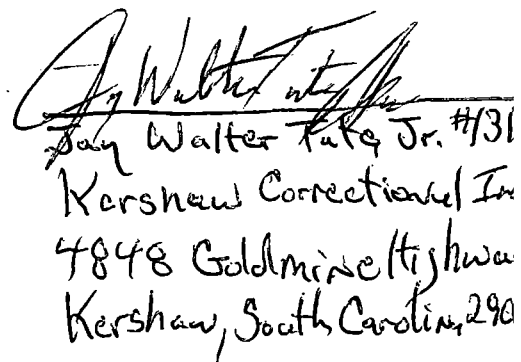 Jay Walter Tate Jr.
Jay Walter Tate, Jr. #131
Kershaw Correctional In
4848 Goldmine Highwa
Kershaw, South Carolina, 290